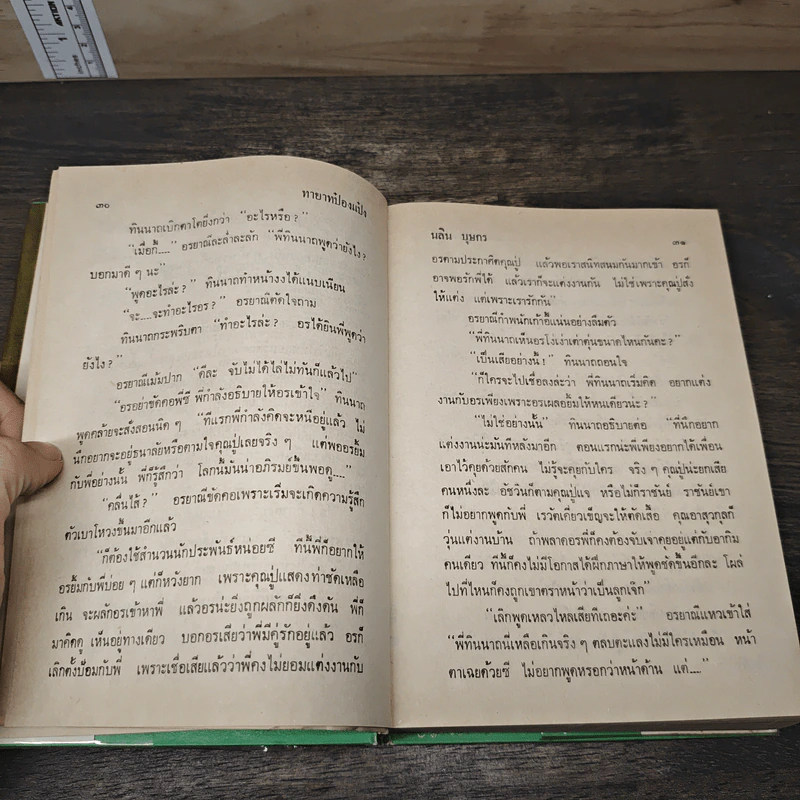 ๓๐ ทายาทป๋องแป๋ง
ทินนาถเบิกตาโตยิ่งกว่า “อะไรหรือ ?”
“เมื่อกี้....” อรยาณีละล่ำละลัก “พี่ทินนาถพูดว่ายังไง ?
บอกมาดี ๆ นะ”
“พูดอะไรล่ะ ?” ทินนาถทำหน้างงได้แนบเนียน
“จะ....จะทำอะไรอร ?” อรยาณีตัดใจถาม
ทินนาถกระพริบตา “ทำอะไรล่ะ ? อรได้ยินพี่พูดว่า
ยังไง ?”
อรยาณีเม้มปาก “ดีละ จับไม่ได้ไล่ไม่ทันก็แล้วไป”
“อรอย่าขัดคอพี่ซี พี่กำลังอธิบายให้อรเข้าใจ” ทินนาถ
พูดคล้ายจะสั่งสอนนิด ๆ “ทีแรกพี่กำลังคิดจะหนีอยู่แล้ว ไม่
นึกอยากจะอยู่ธนาลัยหรือตามใจคุณปู่เลยจริง ๆ แต่พออรยิ้ม
กับพี่อย่างนั้น พี่ก็รู้สึกว่า โลกนี้มันน่าอภิรมย์ขึ้นพอดู....”
“คลื่นไส้ ?” อรยาณีขัดคอเพราะเริ่มจะเกิดความรู้สึก
ตัวเบาโหวงขึ้นมาอีกแล้ว
“ก็ต้องใช้สำนวนนักประพันธ์หน่อยซี ทีนี้พี่ก็อยากให้
อรยิ้มกับพี่บ่อย ๆ แต่ก็หวังยาก เพราะคุณปู่แสดงท่าชัดเหลือ
เกิน จะผลักอรเข้าหาพี่ แล้วอรน่ะยิ่งถูกผลักก็ยิ่งดึงดัน พี่ก็
มาคิดดู เห็นอยู่ทางเดียว บอกอรเสียว่าพี่มีคู่รักอยู่แล้ว อรก็
เลิกตั้งป้อมกับพี่ เพราะเชื่อเสียแล้วว่าพี่คงไม่ยอมแต่งงานกับ
นลิน บุษกร ๓๑
อรตามประกาศิตคุณปู่ แล้วพอเราสนิทสนมกันมากเข้า อรก็
อาจพอรักพี่ได้ แล้วเราก็จะแต่งงานกัน ไม่ใช่เพราะคุณปู่สั่ง
ให้แต่ง แต่เพราะเรารักกัน”
อรยาณีกำพนักเก้าอี้แน่นอย่างลืมตัว
“พี่ทินนาถเห็นอรโง่เง่าเต่าตุ่นขนาดไหนกันคะ ?”
“เป็นเสียอย่างนี้ !” ทินนาถถอนใจ
“ก็ใครจะไปเชื่อลงล่ะว่า พี่ทินนาถเริ่มคิด อยากแต่ง
งานกับอรเพียงเพราะอรเผลอยิ้มให้หนเดียวน่ะ ?”
“ไม่ใช่อย่างนั้น” ทินนาถอธิบายต่อ “ที่นึกอยาก
แต่งงานน่ะมันทีหลังมาอีก ตอนแรกน่ะพี่เพียงอยากได้เพื่อน
เอาไว้คุยด้วยสักคน ไม่รู้จะคุยกับใคร จริง ๆ คุณปู่น่ะยกเสีย
คนหนึ่งละ อัชวินก็ตามคุณปู่แจ หรือไม่ก็ราชันย์ ราชันย์เขา
ก็ไม่อยากพูดกับพี่ เรวัตเดี๋ยวเชิญจะให้ตัดเสื้อ คุณอาสุวกุลก็
วุ่นแต่งงานบ้าน ถ้าพลาดอรพี่ก็คงต้องจับเจาคุยอยู่แต่กับอากิม
คนเดียว ทีนี้ก็คงไม่มีโอกาสได้ฝึกภาษาให้พูดชัดขึ้นอีกละ โผล่
ไปที่ไหนก็คงถูกเขาตราหน้าว่าเป็นลูกเจ๊ก”
“เลิกพูดเหลวไหลเสียทีเถอะค่ะ” อรยาณีแหวเข้าใส่
“พี่ทินนาถนี่เหลือเกินจริง ๆ ตลบตะแลงไม่มีใครเหมือน หน้า
ตาเฉยด้วยซี ไม่อยากพูดหรอกว่าหน้าด้าน แต่....”